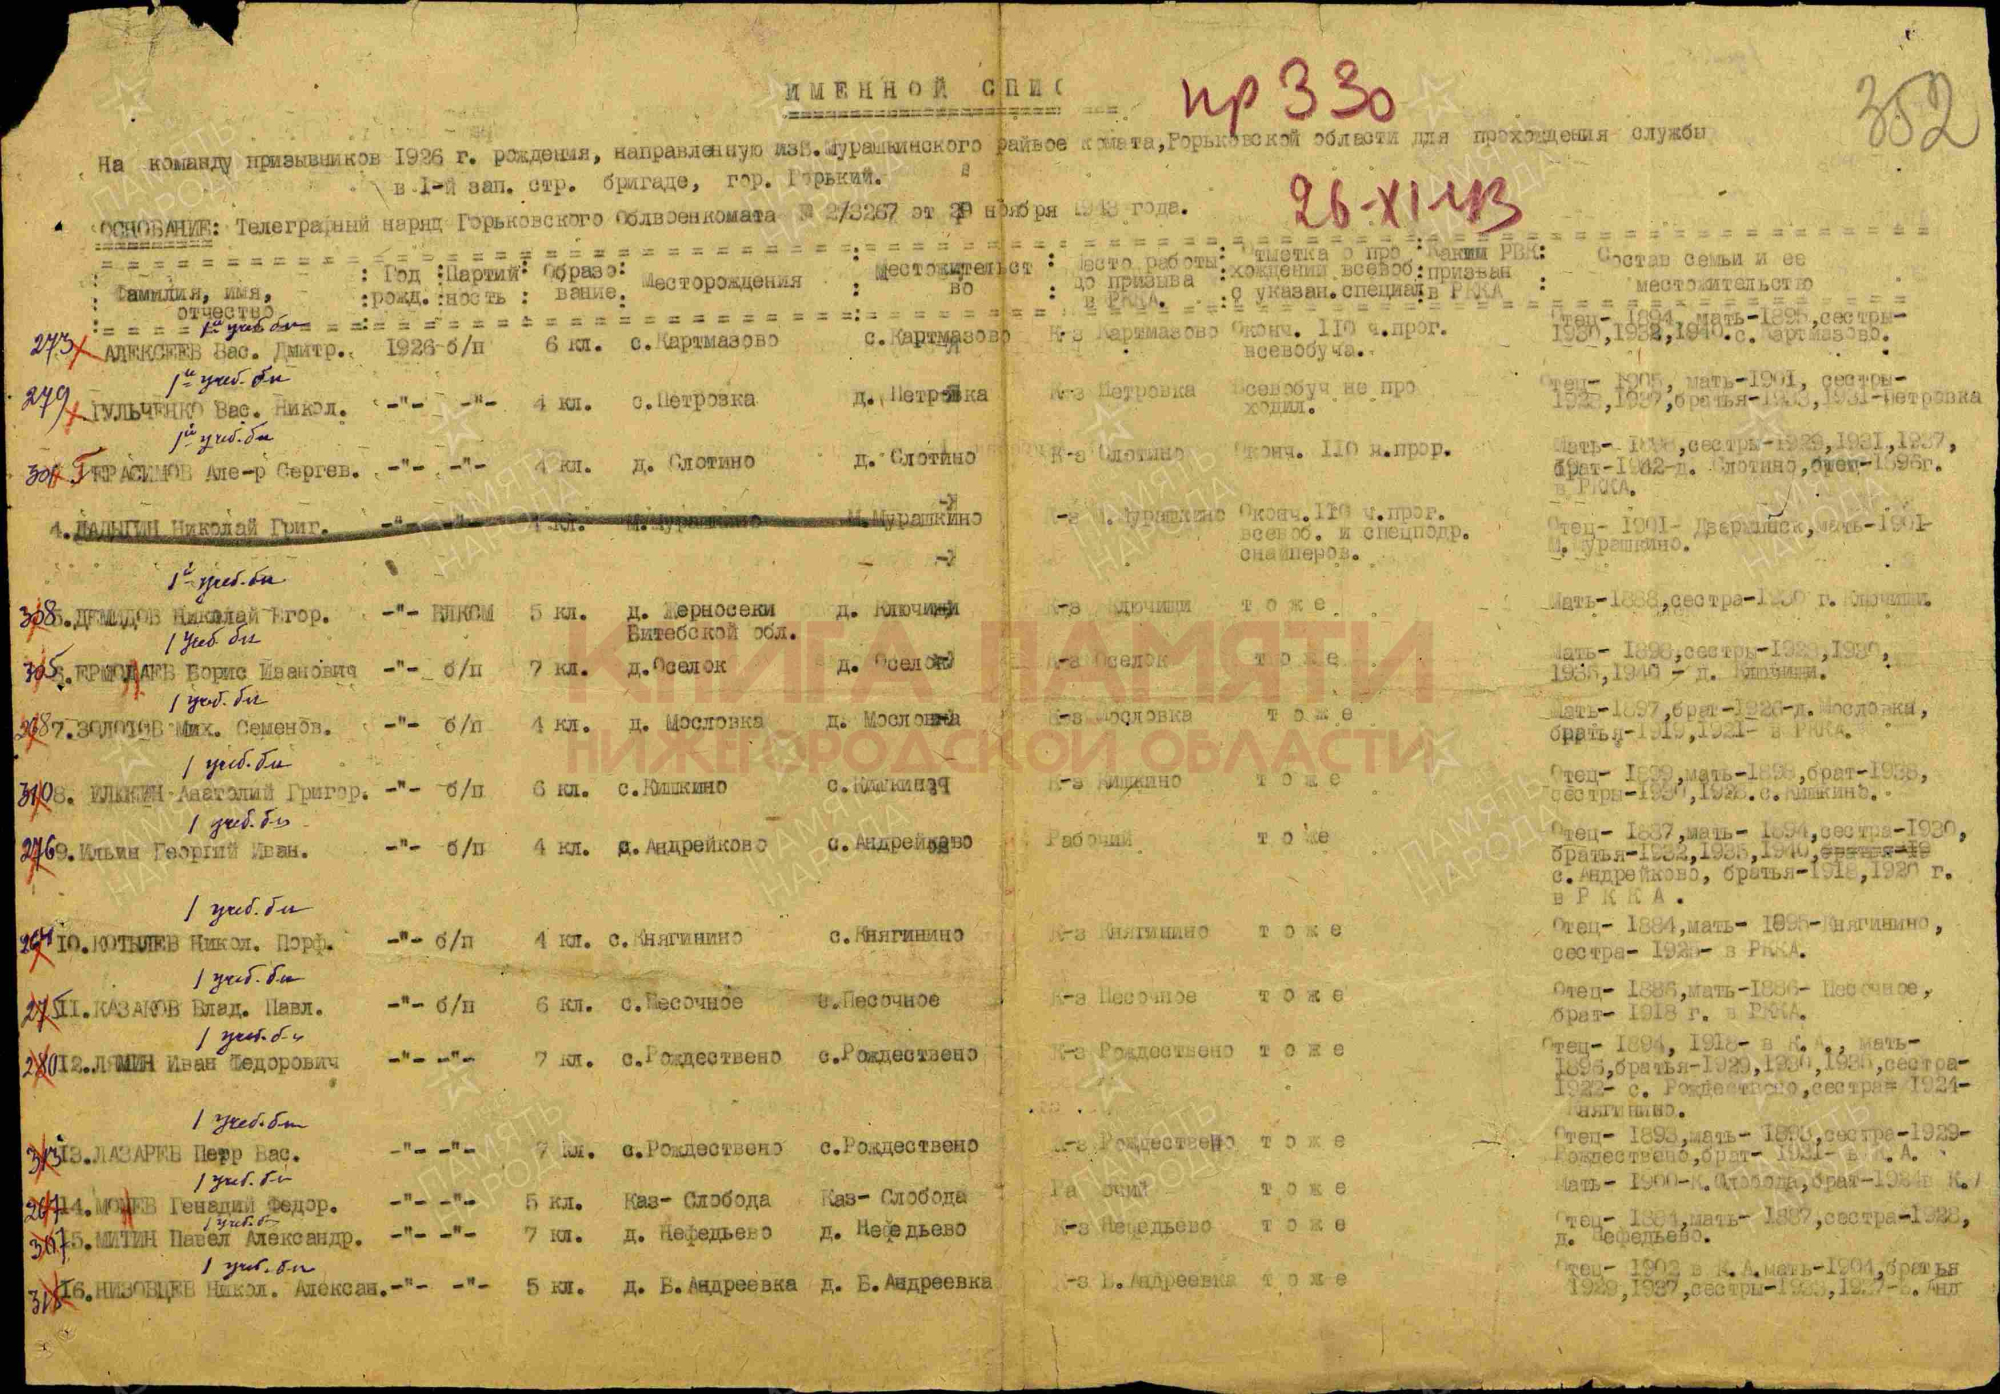 ИМЕННОЙ СПИС
пр 330
352
На команду призывников 1926 г. рождения, направленную из Б.Мурашкинского райвое комата, Горьковской области для прохождения службы
в I-й зап. стр. бригаде, гор. Горький.
26-XI-43
ОСНОВАНИЕ: Телеграфный наряд Горьковского Облвоенкомата № 2/3267 от ноября 1943 года.
Фамилия, имя, отчество : Год рожд. : Партийность : Образование : Месторождения : Местожительство : Место работы до призыва в РККА. : Отметка о прохождении всевоб. с указан. специал : Каким РВК призван в РККА : Состав семьи и ее местожительство
1й учеб бн
273 АЛЕКСЕЕВ Вас. Дмитр. 1926 б/п 6 кл. с.Картмазово с.Картмазово К-з Картмазово Оконч. 110 ч.прог. Отец- 1894, мать-1895,сестры-
всевобуча. 1930,1932,1940.с. Картмазово.
1й учеб. бн
279 ГУЛЬЧЕНКО Вас. Никол. -"- -"- 4 кл. с.Петровка д. Петровка К-з Петровка Всевобуч не про Отец- 1905, мать-1901, сестры-
ходил. 1937,братья-1933,1931-Петровка
1й учеб. бн
ГЕРАСИМОВ Але-р Сергев. -"- -"- 4 кл. д. Слотино д. Слотино К-з Слотино Оконч. 110 ч.прог. Мать- 1898,сестры-1929,1931,1937,
брат-1942-д. Слотино,отец-1896г.
в РККА.
4.ЛАДЫГИН Николай Григ. -"- -"- 4 кл. М.Мурашкино М.Мурашкино К-з М.Мурашкино Оконч.110 ч.прог. Отец- 1901- Дзержинск,мать-1901-
всевоб. и спецподр. М.Мурашкино.
снайперов.
1й учеб.бн
308 5.ДЕМИДОВ Николай Егор. -"- ВЛКСМ 5 кл. д. Жерносеки д. Ключищи К-з Ключищи т о ж е Мать-1888,сестра-1930 г. Ключищи.
Витебской обл.
1 учеб бн
305 6.ЕРМОЛАЕВ Борис Иванович -"- б/п 7 кл. д.Оселок д. Оселок К-з Оселок т о ж е Мать- 1898,сестры-1928,1930,
1935,1940 - д. Ключищи.
1 учеб. бн
7.ЗОЛОТОВ Мих. Семенов. -"- б/п 4 кл. д. Мословка д. Мословка К-з Мословка т о ж е Мать-1897,брат-1926-д.Мословка,
братья-1919,1921- в РККА.
1 учеб. бн
310 8. ИЛЮКИН Анатолий Григор. -"- б/п 6 кл. с.Кишкино с.Кишкино К-з Кишкино т о ж е Отец- 1899,мать-1898,брат-1938,
сестры-1930,1928.с.Кишкино.
1 учеб.бн
276 9.Ильин Георгий Иван. -"- б/п 4 кл. с.Андрейково с.Андрейково Рабочий т о же Отец- 1887,мать- 1894,сестра-1930,
братья-1932,1935,1940,братья-19
с.Андрейково, братья-1918,1920 г.
в Р К К А .
1 учеб.бн
10.КОТЫЛЕВ Никол. Порф. -"- б/п 4 кл. с.Княгинино с.Княгинино К-з Княгинино т о ж е Отец- 1884,мать- 1895-Княгинино,
сестра- 1923- в РККА.
1 учеб. бн
275 11.КАЗАКОВ Влад. Павл. -"- б/п 6 кл. с.Песочное с.Песочное К-з Песочное т о ж е Отец- 1886,мать-1886- Песочное,
брат- 1918 г. в РККА.
1 учеб.бн
280 12.ЛЯМИН Иван Федорович -"- -"- 7 кл. с.Рождествено с.Рождествено К-з Рождествено т о ж е Отец- 1894, 1918- в К.А., мать-
1896,братья-1929,1930,1935,сестра-
1922- с. Рождествено,сестра- 1924-
Княгинино.
1 учеб.бн
313 13.ЛАЗАРЕВ Петр Вас. -"- -"- 7 кл. с.Рождествено с.Рождествено К-з Рождествено т о ж е Отец- 1893,мать- 1893,сестра-1929-
Рождествено,брат- 1921- в К.А.
1 учеб.бн
14. Генадий Федор. -"- -"- 5 кл. Каз- Слобода Каз- Слобода Рабочий т о ж е Мать- 1900-К.Слобода,брат-1924в К.
1 учеб.б
15.МИТИН Павел Александр. -"- -"- 7 кл. д. Нефедьево д. Нефедьево К-з Нефедьево т о ж е Отец- 1884,мать- 1887,сестра-1928,
д. Нефедьево.
1 учеб.бн
16.НИЗОВЦЕВ Никол. Алексан. -"- -"- 5 кл. д. Б.Андреевка д. Б.Андреевка К-з Б.Андреевка т о ж е Отец- 1902 в К.А.мать-1904,братья
1929,1937,сестры-1933,1937-Б.Анд
КНИГА ПАМЯТИ
НИЖЕГОРОДСКОЙ ОБЛАСТИ
ПАМЯТЬ НАРОДА